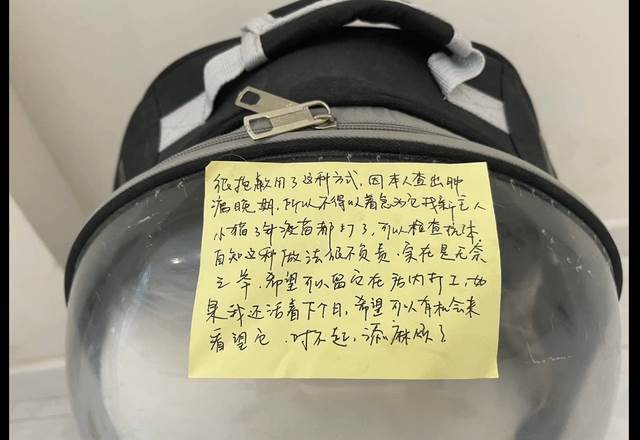 很抱歉用了这种方式，因本人查出肿
瘤晚期，所以不得以着急为它找新主人
小猫3针海苗都打了，可以检查抗体
自知这种做法很不负责，实在是无奈
之举，希望可以留它在店内打工，如
果我还活着下个月，希望可以有机会来
看望它，对不起，添麻烦了